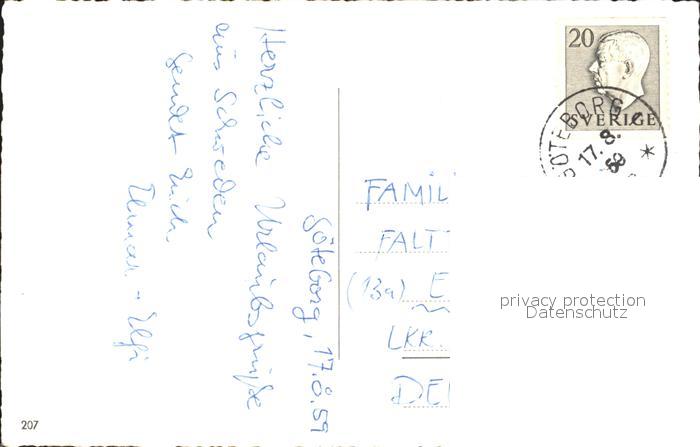 Göteborg, 17.8.59
Herzliche Urlaubsgrüße
aus Schweden
sendet Euch
Elmar + Elfi
FAMIL
FALT
(13a) E
LKR.
DE
20
SVERIGE
GÖTEBORG
17. 8.
59
privacy protection
Datenschutz
207